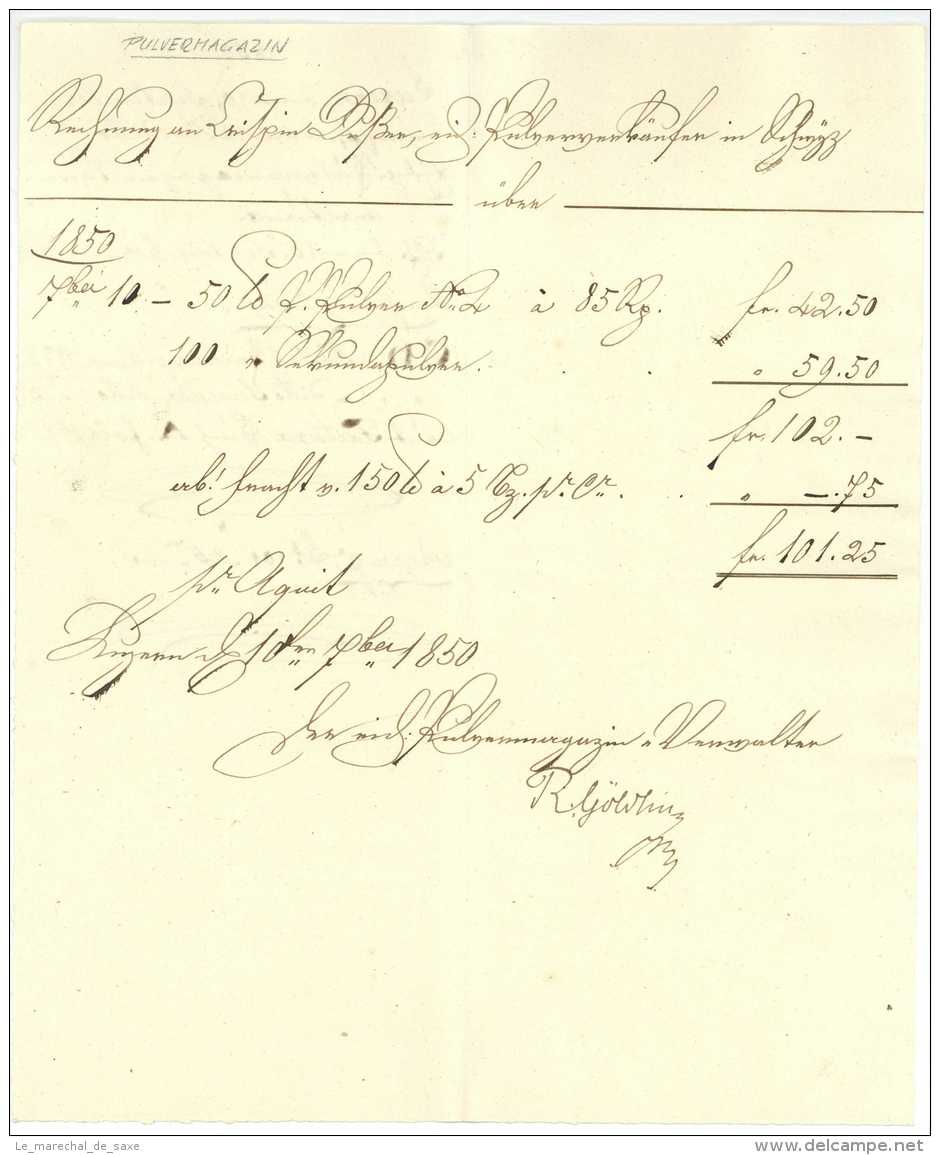 PULVERMAGAZIN
Rechnung an Crispin Busser, eid: Pulververkäufer in Schwyz
über
1850
7ber 10. – 50 ℔ Pulver No. 4 à 85 Rp. fr. 42.50
100 " Sekundapulver. " 59.50
fr. 102.–
ab: Fracht v. 150 ℔ à 5 Bz. pr. Cr. " –.75
fr. 101.25
pr Aquit
Luzern d. 10ten 7ber 1850
Der eid: Pulvermagazin-Verwalter
R. Göldlin
Le_marechal_de_saxe
www.delcampe.net